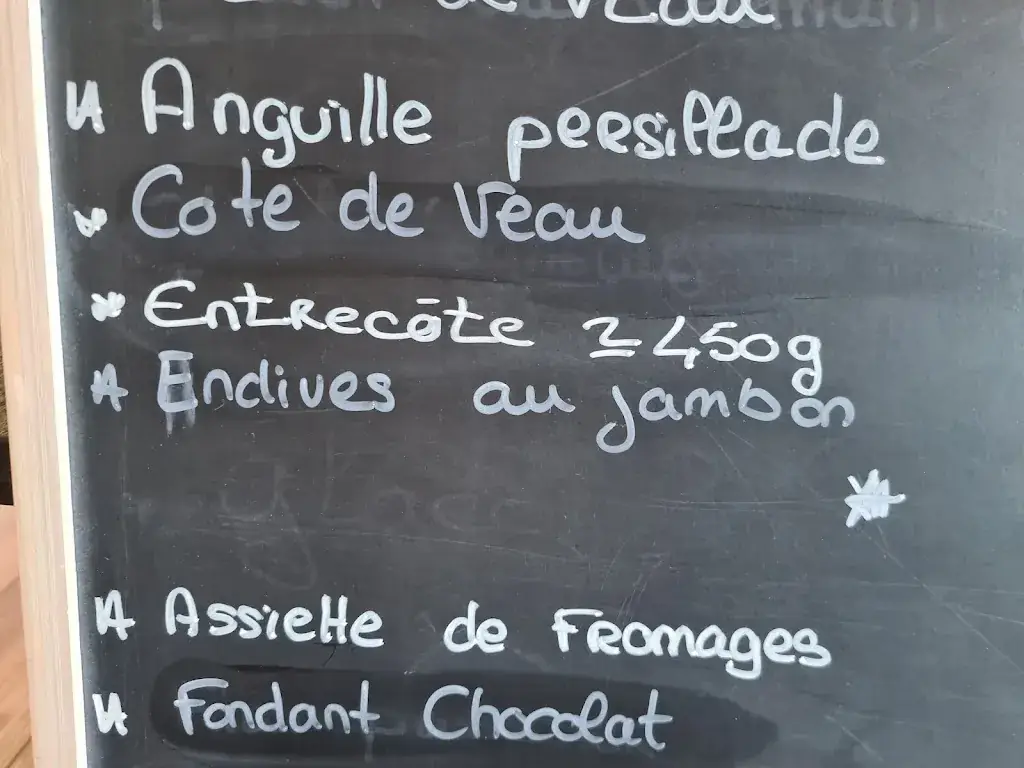 de veau
Anguille persillade
Cote de Veau
Entrecôte ≥ 450g
Endives au jambon
Assiette de Fromages
Fondant Chocolat